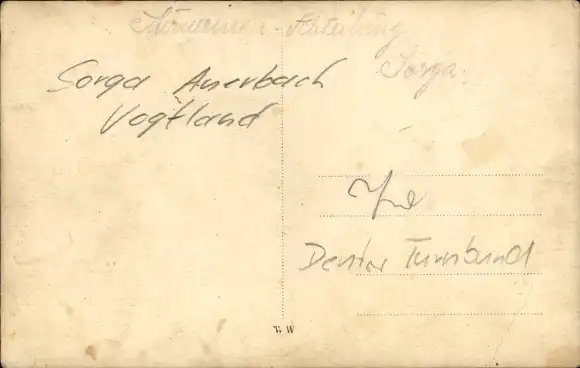 Turnerinnen-Abteilung
Sorga.
Sorga Auerbach
Vogtland
Deutscher Turnerbund